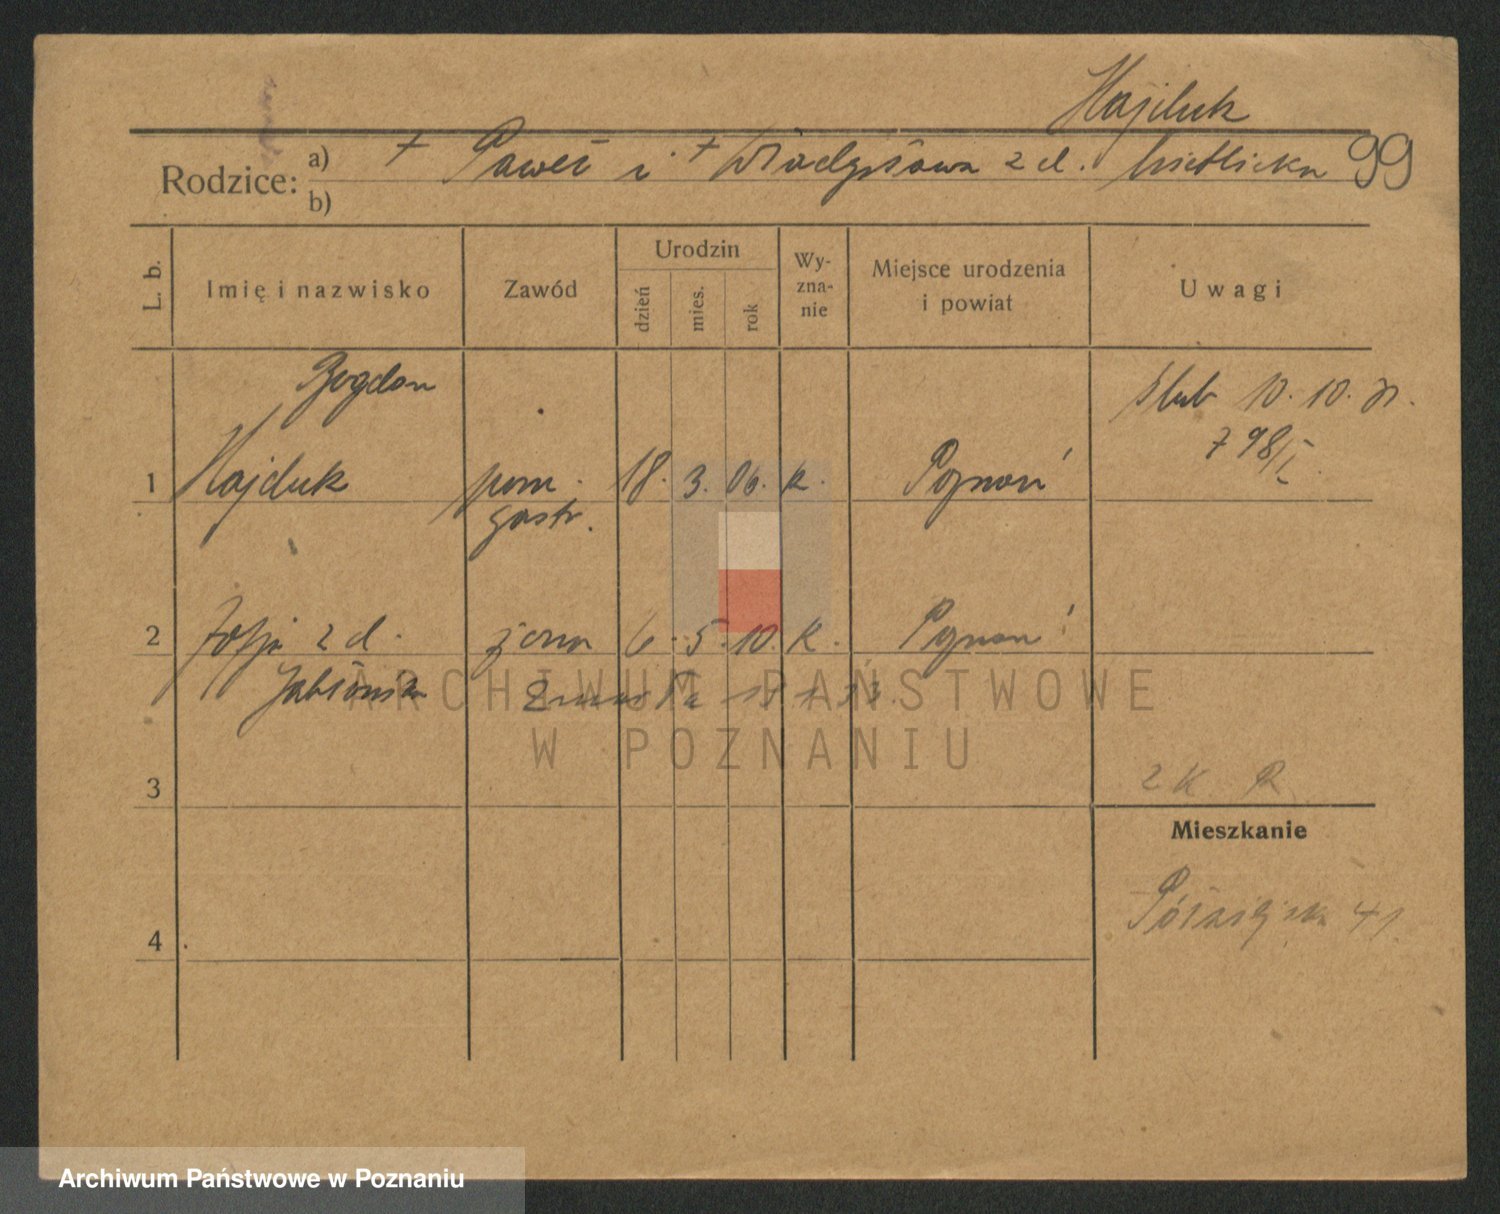 Hajduk
Rodzice: a) + Paweł i + Władysława z d. 99
b)
L. b. Imię i nazwisko Zawód Urodzin dzień mies. rok Wyzna-nie Miejsce urodzenia i powiat Uwagi
Bogdan Ślub 10. 10. 31.
798/I.
1 Hajduk pom. 18. 3. 06. k. Poznań
gastr.
2 Zofja z d. żona 6. 5. 10. k. Poznań
Jabłońska Zmarła
ARCHIWUM PAŃSTWOWE
W POZNANIU
3 2 K. R.
Mieszkanie
4 41
Archiwum Państwowe w Poznaniu